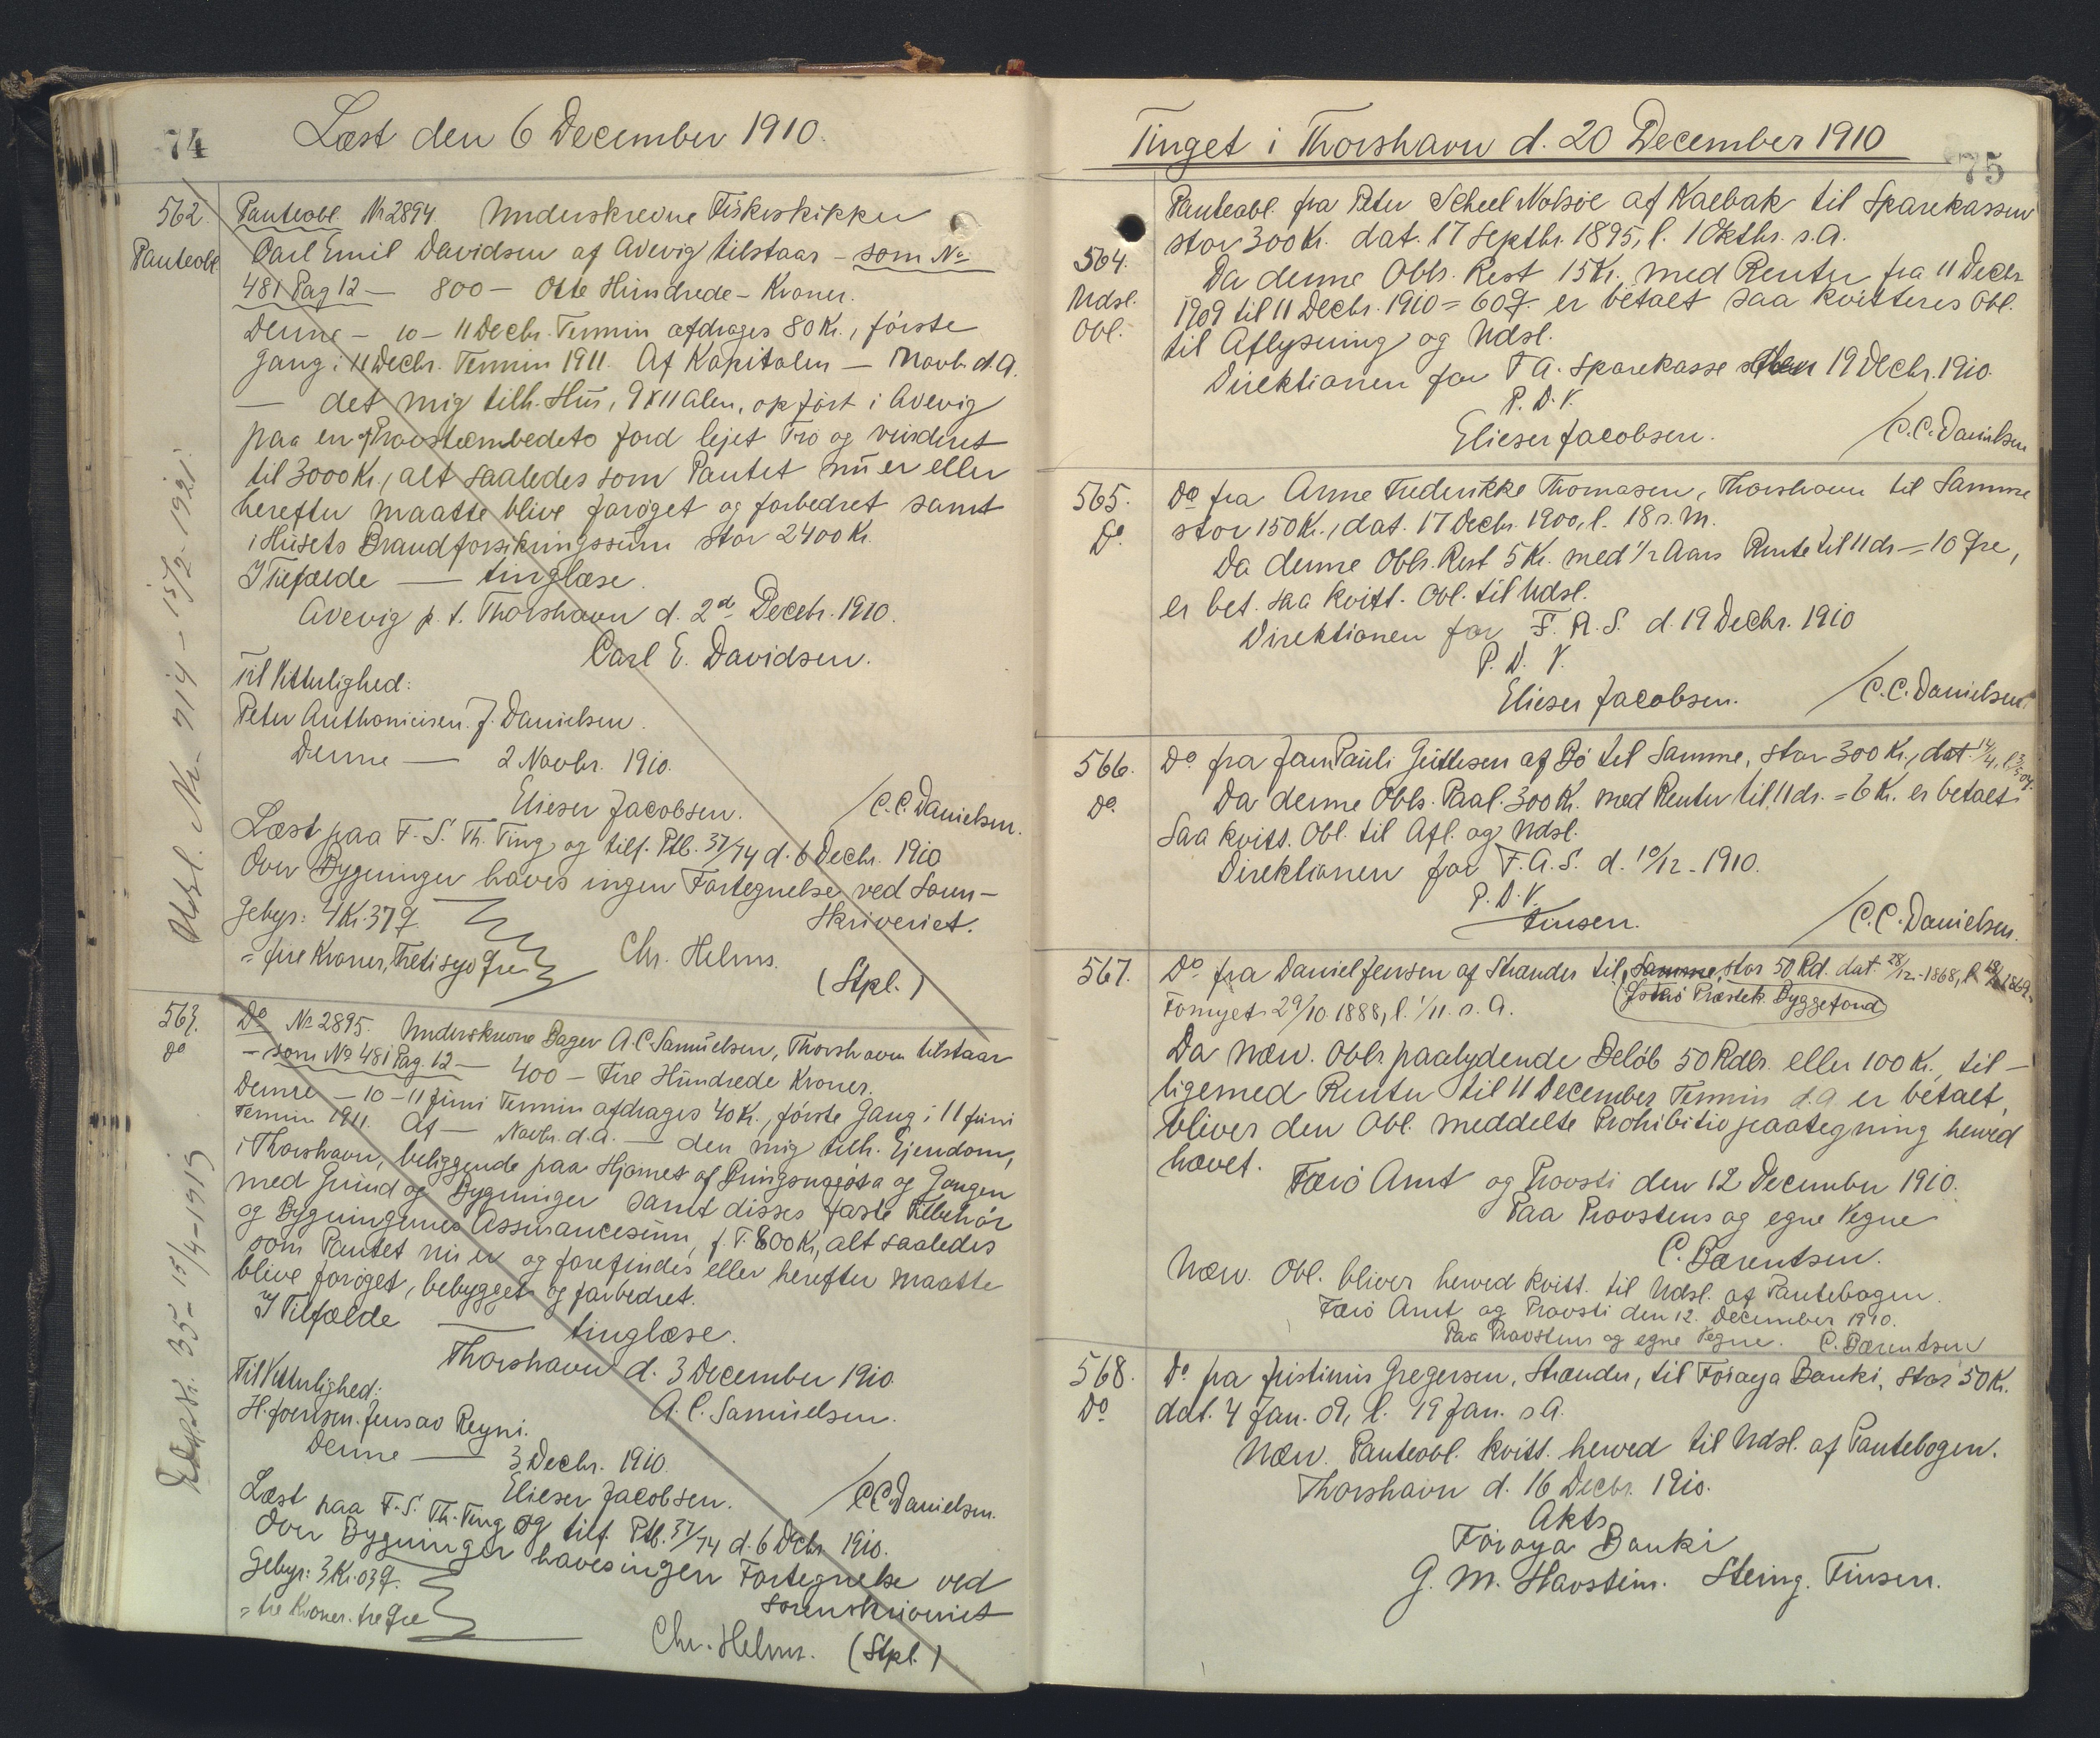 74
Læst den 6 December 1910.
562.
Panteobl.
Panteobl. Nr 2894. Underskrevne Fiskeskipper
Carl Emil Davidsen af Avevig tilstaar - som No
481 Pag 12 - 800 - Otte Hundrede - Kroner.
Denne - 10 - 11 Decbr. Termin afdrages 80 Kr., første
Gang i 11 Decbr. Termin 1911. Af Kapitalen - Novb. d.A.
- det mig tilh. Hus, 9 x 11 Alen, opført i Avevig
paa en af Provsteembedets Jord lejet Trø og vurderet
til 3000 Kr., alt saaledes som Pantet nu er eller
herefter maatte blive forøget og forbedret samt
i Husets Brandforsikringssum stor 2400 Kr.
I Tilfælde - tinglæse.
Avevig p. t. Thorshavn d. 2d Decbr. 1910.
Carl E. Davidsen.
Til Vitterlighed:
Peter Anthoniesen. J. Danielsen.
Denne - 2 Novbr. 1910.
Elieser Jacobsen. / C.C. Danielsen.
Læst paa F. S. Th. Ting og tilf. Ptb. 37/74 d. 6 Decbr. 1910
Over Bygninger haves ingen Fortegnelse ved Soren-
skriveriet.
Gebyr: 4 Kr. 37 Ø
= fire Kroner, Tretisyv Øre
Chr. Helms.
(Stpl.)
Udsl. Nr. 714 - 15/2 - 1921.
563.
do
Do No 2895. Underskrevne Bager A.C. Samuelsen, Thorshavn tilstaar
- som No 481 Pag. 12 - 400 - Fire Hundrede Kroner.
Denne - 10 - 11 Juni Termin afdrages 40 Kr., første Gang i 11 Juni
Termin 1911. Af - Novbr. d.A. - den mig tilh. Ejendom,
i Thorshavn, beliggende paa Hjørnet af Bringsnagøta og Gongen
med Grund og Bygninger samt disses faste Tilbehør
og Bygningernes Assurancesum, p. T. 800 Kr., alt saaledes
som Pantet nu er og forefindes eller herefter maatte
blive forøget, bebygget og forbedret.
I Tilfælde - tinglæse.
Thorshavn d. 3 December 1910
A. C. Samuelsen.
Til Vitterlighed:
H. Joensen. Jens av Reyni.
Denne - 3 Decbr. 1910.
Elieser Jacobsen. / C.C. Danielsen.
Læst paa F. S. Th. Ting og tilf. Ptb. 37/74 d. 6 Dcbr 1910.
Over Bygninger haves ingen Fortegnelse ved
Sorenskriveriet
Gebyr: 3 Kr. 03 Ø.
= tre Kroner. tre Øre
Chr. Helms. (Stpl.)
35 - 15/4 - 1915
Tinget i Thorshavn d. 20 December 1910
75
564.
Udsl.
Obl.
Panteobl. fra Peter Scheel Nolsøe af Kaebak til Sparekassen
stor 300 Kr. dat. 17 Septbr. 1895, l. 1 Oktbr. s.A.
Da denne Obls. Rest 15 Kr. med Renter fra 11 Decbr
1909 til 11 Decbr. 1910 = 60 Ø. er betalt saa kvitteres Obl.
til Aflysning og Udsl.
Direktionen for F A. Sparekasse den 19 Decbr. 1910.
P. D. V.
Elieser Jacobsen. / C.C. Danielsen
565.
Do.
Do fra Anne Frederikke Thomasen, Thorshavn til Samme
stor 150 Kr., dat. 17 Decbr. 1900, l. 18 s.M.
Da denne Obls. Rest 5 Kr. med 1/2 Aars Rente til 11 ds = 10 Øre,
er bet. saa kvitt. Obl. til Udsl.
Direktionen for F. A. S. d. 19 Decbr. 1910
P. D. V.
Elieser Jacobsen. / C.C. Danielsen.
566.
Do.
Do fra Jens Pauli Guttesen af Bø til Samme, stor 300 Kr., dat. 14/4,
Da denne Obls. Paal. 300 Kr. med Renter til 11 ds. = 6 Kr. er betalt
saa kvitt. Obl. til Afl. og Udsl.
Direktionen for F. A. S. d. 10/12 - 1910.
P. D. V.
Finsen. / C.C. Danielsen.
567.
Do fra Daniel Jensen af Strænder til Samme, stor 50 Rd. dat. 28/12 - 1868, l.
(Østerø Præstek. Byggefond)
Fornyet 29/10 1888, l. 1/11. s. A.
Da næv. Obls. paalydende Beløb 50 Rdlr. eller 100 Kr. til-
ligemed Renter til 11 December Termin d.A er betalt,
bliver den Obl. meddelte Prohibitivpaategning herved
hævet.
Færø Amt og Provsti den 12 December 1910.
Paa Provstens og egne Vegne
C. Bærentsen.
Næv. Obl. bliver herved kvitt. til Udsl. af Pantebogen.
Færø Amt og Provsti den 12. December 1910.
Paa Provstens og egne Vegne. C. Bærentsen
568.
Do
Do. fra Justinus Gregersen, Strænder, til Føroya Banki, stor 50 Kr.
dat. 4 Jan. 09, l. 19 Jan. s.A.
Næv. Panteobl. kvitt. herved til Udsl. af Pantebogen.
Thorshavn d. 16 Decbr. 1910.
Akts
Føroya Banki
G. M. Havsteen. Steing. Finsen.